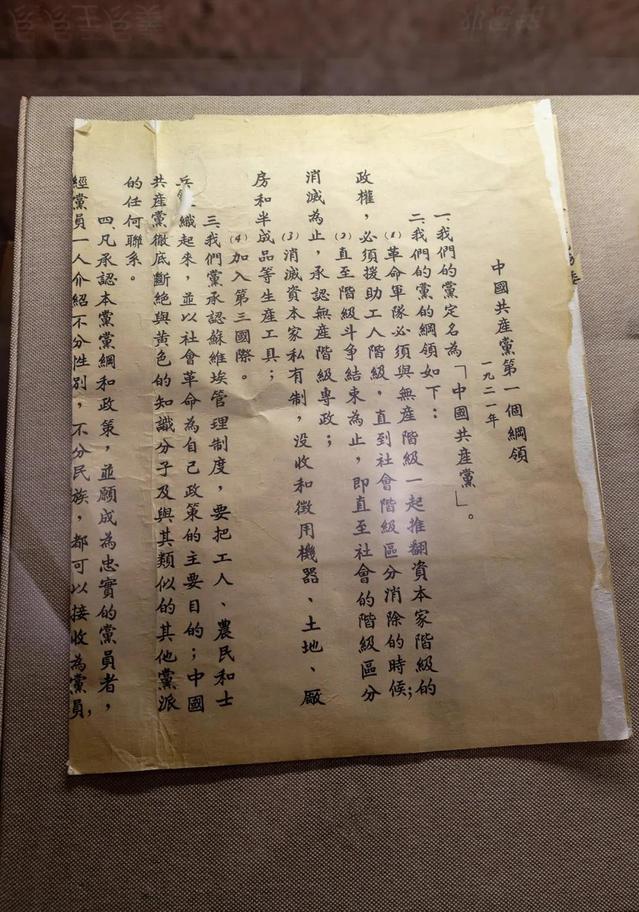 中國共産黨第一個綱領
一九二一年
一、我們的黨定名為「中國共産黨」。
二、我們的黨的綱領如下：
⑴革命軍隊必須與無産階級一起推翻資本家階級的
政權，必須援助工人階級，直到社會階級區分消除的時候；
⑵直至階級斗争結束為止，即直至社會的階級區分
消滅為止，承認無産階級專政；
⑶消滅資本家私有制，没收和徵用機器、土地、厰
房和半成品等生産工具；
⑷加入第三國際。
三、我們黨承認蘇維埃管理制度，要把工人、農民和士
兵 織起來，並以社會革命為自己政策的主要目的；中國
共産黨徹底斷絶與黄色的知識分子及與其類似的其他黨派
的任何聯系。
四、凡承認本黨黨綱和政策，並願成為忠實的黨員者，
經黨員一人介紹不分性别，不分民族，都可以接收為黨員，